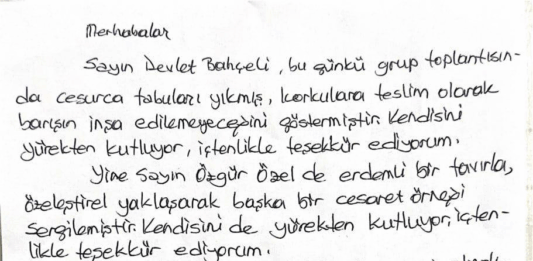 Merhabalar
Sayın Devlet Bahçeli, bu günkü grup toplantısın-
da cesurca tabuları yıkmış, korkulara teslim olarak
barışın inşa edilemeyeceğini göstermiştir. Kendisini
yürekten kutluyor, içtenlikle teşekkür ediyorum.
Yine Sayın Özgür Özel de erdemli bir tavırla,
özeleştirel yaklaşarak başka bir cesaret örneği
sergilemiştir. Kendisini de yürekten kutluyor, içten-
likle teşekkür ediyorum.